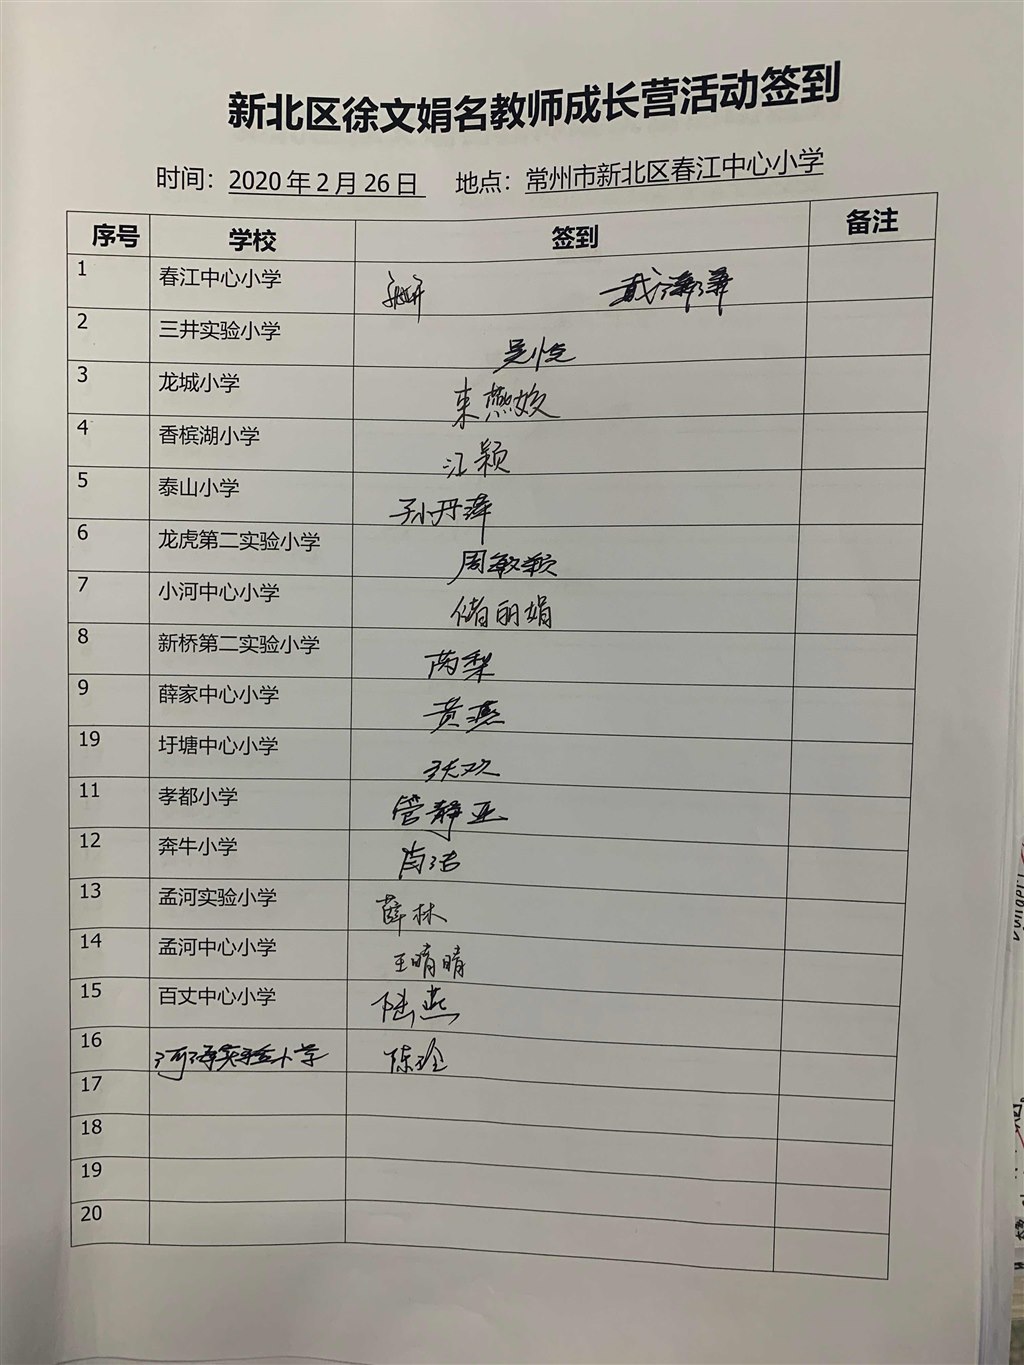 新北区徐文娟名教师成长营活动签到
时间：2020年2月26日 地点：常州市新北区春江中心小学
序号 学校 签到 备注
1 春江中心小学 戴潇潇
2 三井实验小学 吴恺
3 龙城小学 束燕姣
4 香槟湖小学 江颖
5 泰山小学 孙丹萍
6 龙虎第二实验小学 周敏颖
7 小河中心小学 储丽娟
8 新桥第二实验小学 芮梨
9 薛家中心小学 黄燕
19 圩塘中心小学 张欢
11 孝都小学 管静亚
12 奔牛小学 肖洁
13 孟河实验小学 薛林
14 孟河中心小学 王晴晴
15 百丈中心小学 陆燕
16 河海实验小学 陈玲
17
18
19
20